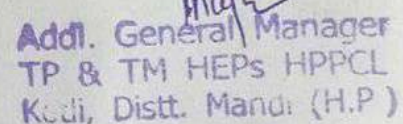 Addl. General Manager
TP & TM HEPs HPPCL
Distt. Mandi (H.P)